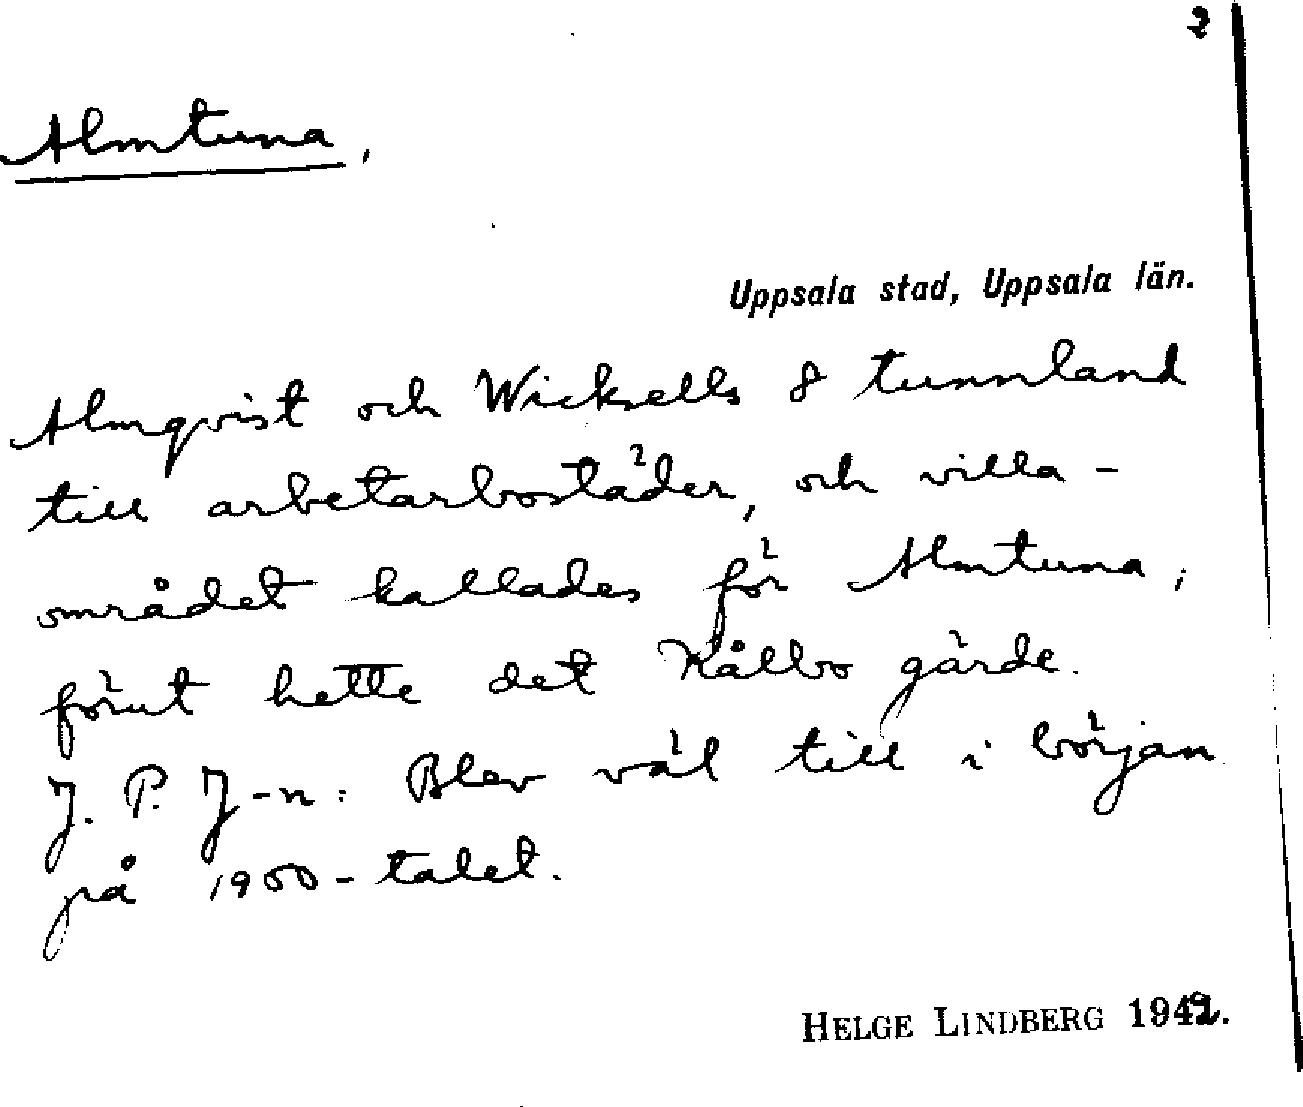 2
Almtuna,
Uppsala stad, Uppsala län.
Almqvist och Wicksells 8 tunnland
till arbetarbostäder, och villa-
området kallades för Almtuna,
förut hette det Kålbo gärde.
J. P. J-n: Blev väl till i början
på 1900-talet.
HELGE LINDBERG 1942.